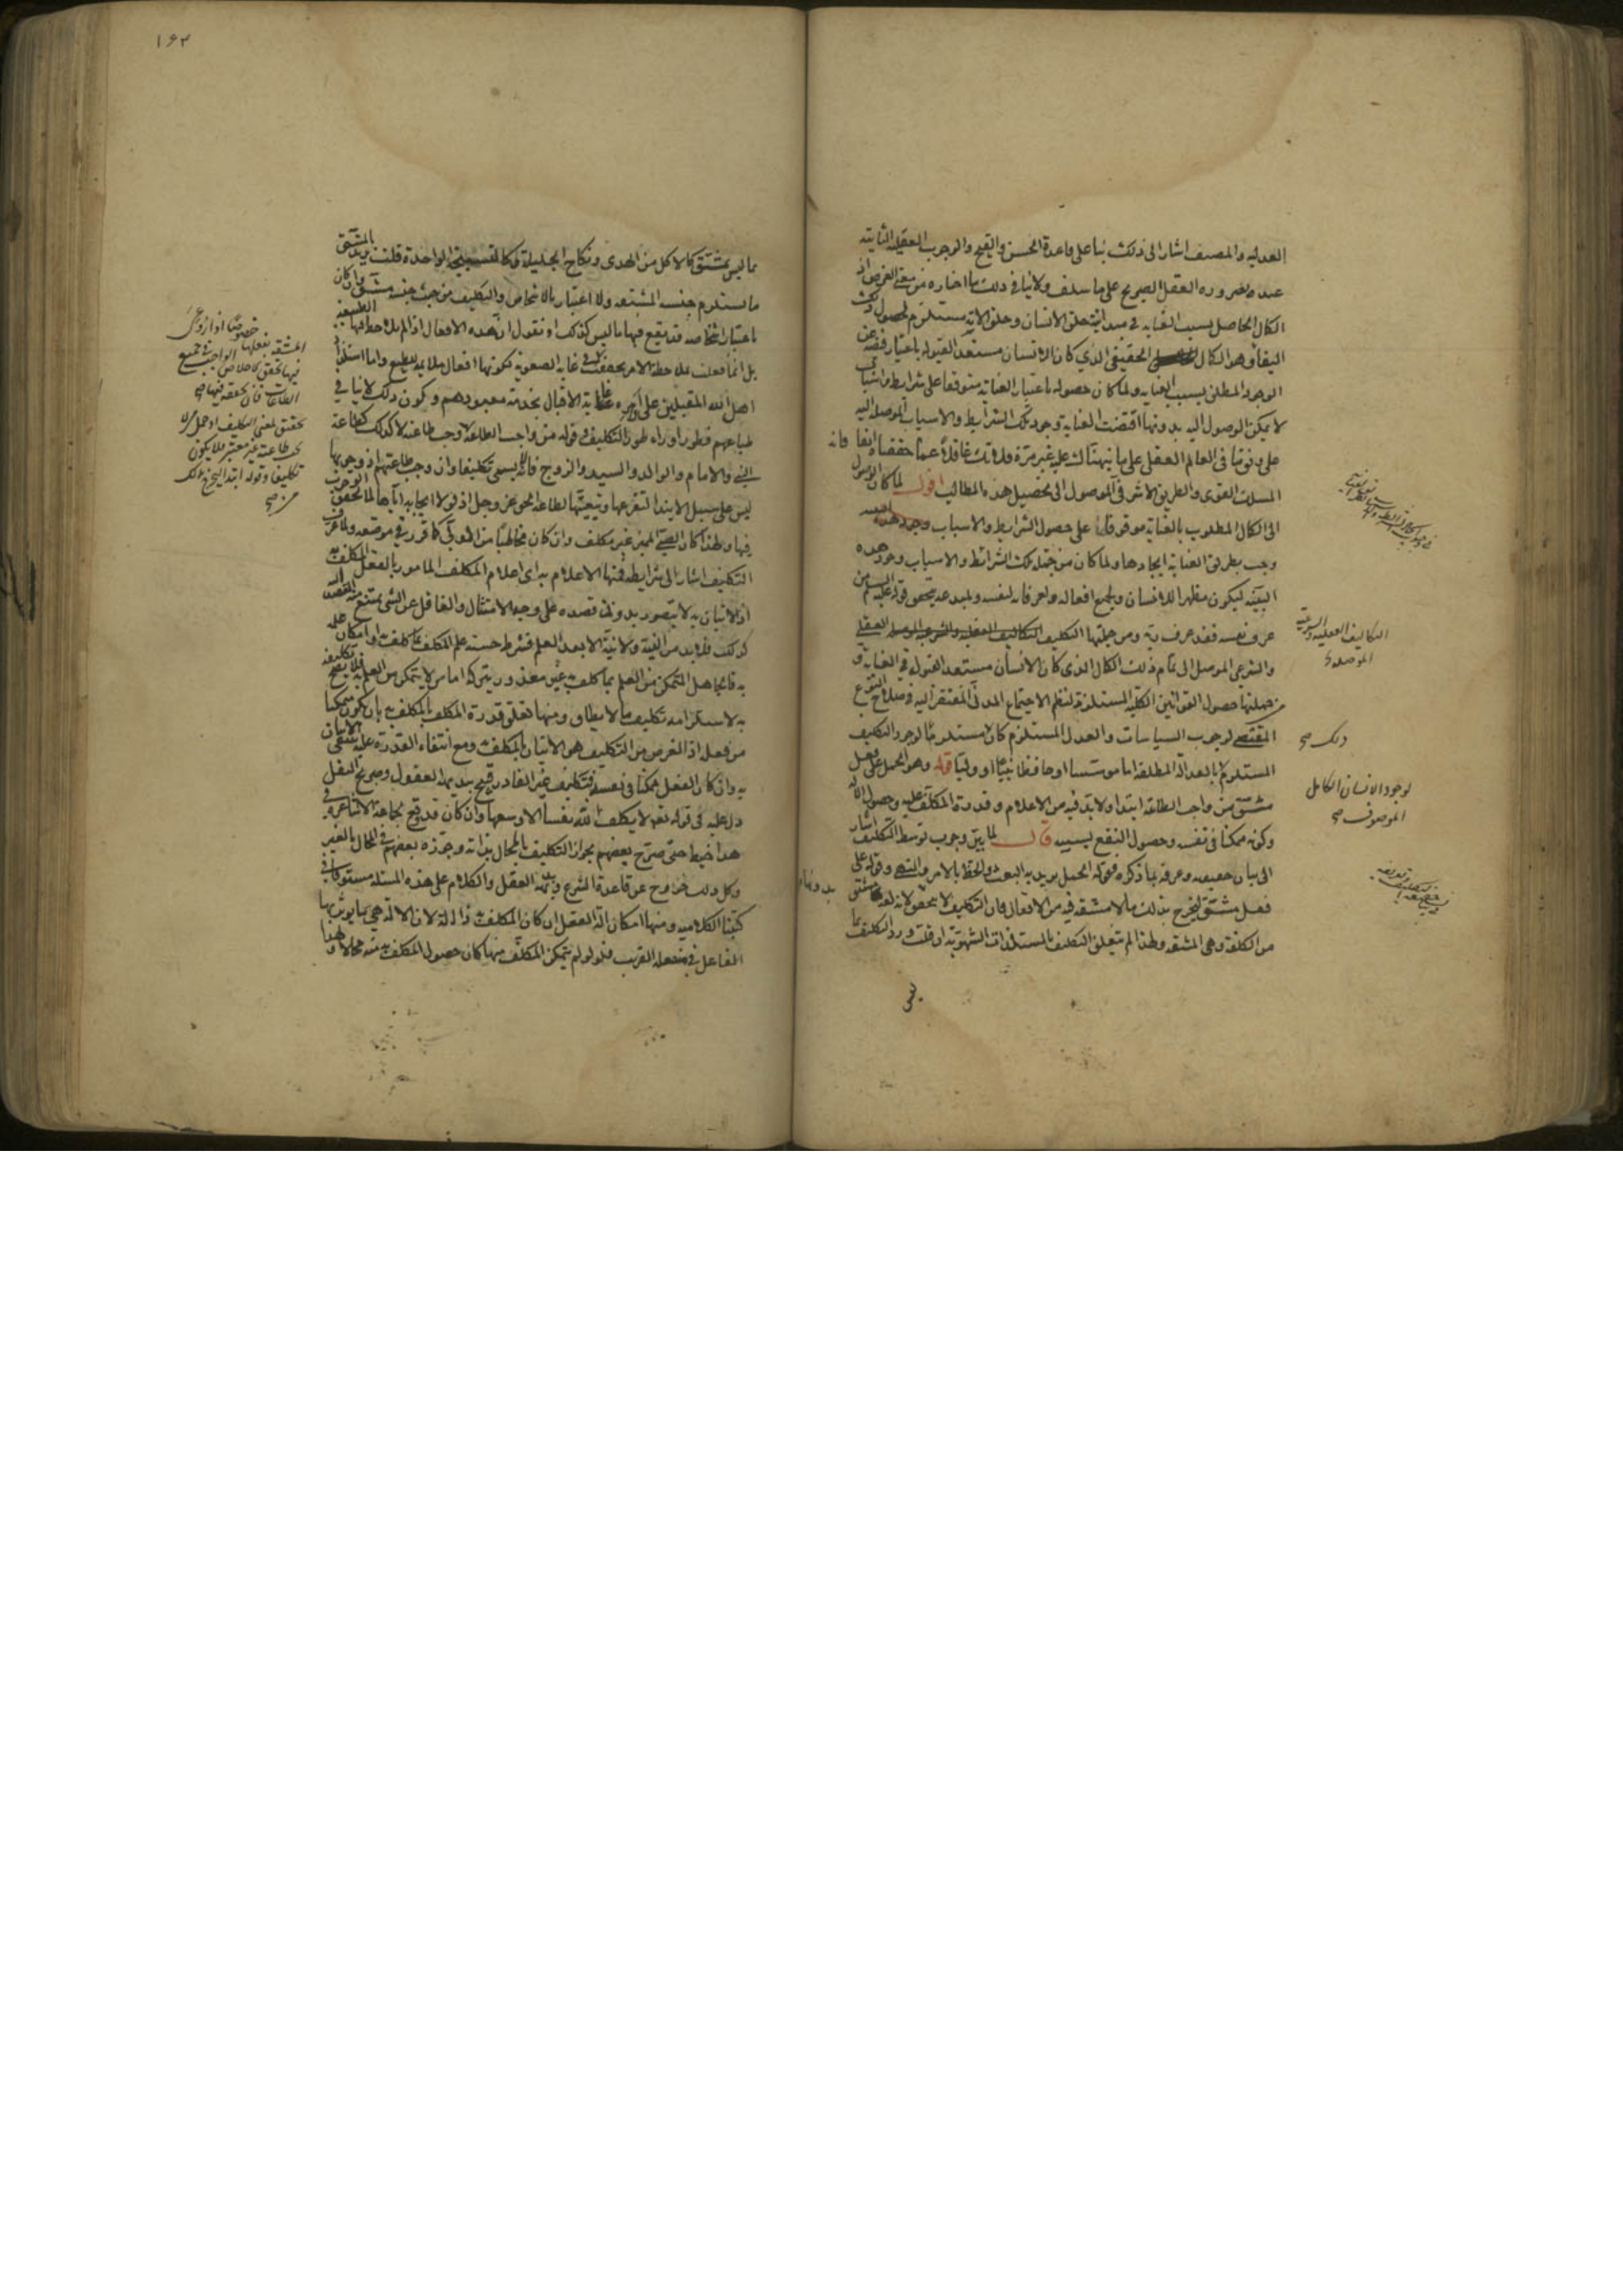 العدلية والمصنف اشار الى ذلك بناء على قاعدة الحسن والقبح والوجوب العقلي الثابتة
عنده بضرورة العقل الصريح على ما سلف ولا ينافي ذلك ما اختاره من معنى الغرض اذ
الكمال الحاصل بسبب العناية في خلق الانسان وخلق الاية مستلزم لحصول ذلك
البقاء وهو الكمال الحقيقي الذي كان الانسان مستعد القبوله باعتبار
الوجود المطلق بسبب العناية ولما كان حصوله باعتبار العناية متوقفا على شرايط واسباب
لا يمكن الوصول اليه بدونها اقتضت العناية وجود تلك الشرايط والاسباب الموصلة اليه
على وقوعها في العالم العقلي على ما نبهناك عليه غير مرة فلا تك غافلا عما حققناه انفا فانه
المسلك القوي والطريق الاشرف الموصل الى تحصيل هذه المطالب اقول لما كان الوصول
الى الكمال المطلوب بالعناية موقوفا على حصول الشرايط والاسباب
وجب بطريق العناية ايجادها ولما كان من جملة تلك الشرائط والاسباب وجود هذه
البنية ليكون مظهرا للانسان ولجميع افعاله ولعرفانه لنفسه ولمبدعه بتحقق قوله عليه السلام من
عرف نفسه فقد عرف ربه ومن جملتها التكليف التكاليف العقلية والشرعية الموصلة العقلي
والشرعي الموصل الى تمام ذلك الكمال الذي كان الانسان مستعد القبوله في العناية و
من جملتها حصول القوانين الكلية المستلزمة لنظم الاجتماع المدني المفتقر اليه في صلاح النوع
المقتضي لوجوب السياسات والعدل المستلزم كان مستلزما لوجود التكليف
المستلزم بالعدالة المطلقة اما مؤسسا او حافظا نبيا او وليا قوله وهو الحمل على فعل
مشق من واجب الطاعة ابتداء ولا بد فيه من الاعلام وقدرة المكلف عليه وحصول الالة
وكونه ممكنا في نفسه وحصول النفع بسببه قال لما بين وجوب توسط التكليف اشار
الى بيان حقيقته وعرفه بما ذكره فقوله الحمل يريد به البعث والحظ بالامر والنهي وقوله على
فعل مشق ليخرج بذلك ما لا مشقة فيه من الافعال فان التكليف لا يتحقق لانه لغة مشتق
من الكلفة وهي المشقة ولهذا لم يتعلق التكليف بالمستلذات الشهوية او قلت ورد التكليف بما
ليس
التكاليف العقلية والشرعية
الموصلة
ذلك صح
لوجود الانسان الكامل
الموصوف صح
بدونها
١٦٢
بما ليس بمشق كالاكل من الهدى ونكاح الحليلة الواحدة قلت يريد بالمشق
ما يستلزم جنسه المشقة ولا اعتبار بالاشخاص والتكليف من حيث جنسه مشق وان كان
باعتبار اشخاصه قد يقع فيها ما ليس كذلك او نقول ان هذه الافعال اذا لم يلاحظ فيها الطبيعة
بل انما فعلت بملاحظة الامر بحققت في غاية الصعوبة لكونها افعال ملايمة للطبع واما استلذاذ
اهل الله المقبلين على اوامره غاية الاقبال بخدمة معبودهم وكون ذلك لا ينافي
طباعهم فطور اوراء طور التكليف وقوله من واجب الطاعة لا وجب طاعته لا كذلك كطاعة
النبي والامام والوالد والسيد والزوج فانه لا يسمى تكليفا وان وجب طاعتهم اذ وجوبها
ليس على سبيل الابتداء لتفرعها وتبعيتها لطاعة الحق عز وجل اذ لولا ايجابه اياها لما تحقق الوجوب
فيها ولهذا كان الصبي المميز غير مكلف وان كان مخاطبا من الولي كما قرر في موضعه ولما عرف
التكليف اشار الى شرايطه فمنها الاعلام به اي اعلام المكلف المامور بالفعل المكلف به
اذ الاتيان به لا يتصور بدون قصده على وجه الامتثال والغافل عن الشيء يمتنع منه القصد اليه
كذلك فلا بد من النية ولا نية الا بعد العلم فشرط حسنه علم المكلف بما كلف او امكان علمه
به فالجاهل المتمكن من العلم بما كلف به غير معذور بتركه اما من لا يتمكن من العلم فلا يصح تكليفه
به لاستلزامه تكليف ما لا يطاق ومنها تعلق قدرة المكلف بالمكلف به بان يكون متمكنا
من فعله اذ الغرض من التكليف هو الاتيان بالمكلف به ومع انتفاء القدرة عليه ينتفي الاتيان
به وان كان الفعل ممكنا في نفسه فتكليف غير القادر قبيح ببديهة العقول وصريح النقل
دل عليه في قوله تعالى لا يكلف الله نفسا الا وسعها وان كان قد وقع لجماعة الاشاعرة في
هذا خبط حتى صرح بعضهم بجواز التكليف بالمحال بذاته وجوزه بعضهم في المحال بالغير
وكل ذلك خروج عن قاعدة الشرع وبديهة العقل والكلام على هذه المسئلة مستوفا في
كتبنا الكلامية ومنها امكان الة الفعل ان كان المكلف به ذا الة لان الالة هي ما يؤثر بها
الفاعل في منفعله القريب فلو لم يتمكن المكلف منها كان حصول المكلف به منه محالا ولهذا
المشقة بفعلها
فيها تحقق الاخلاص الواجب في جميع
الطاعات فان تحققه فيها صح
تحقق لمعنى التكليف او حمل من لا
تجب طاعته غير معتبر فلا يكون
تكليفا وقوله ابتداء ليخرج ذلك